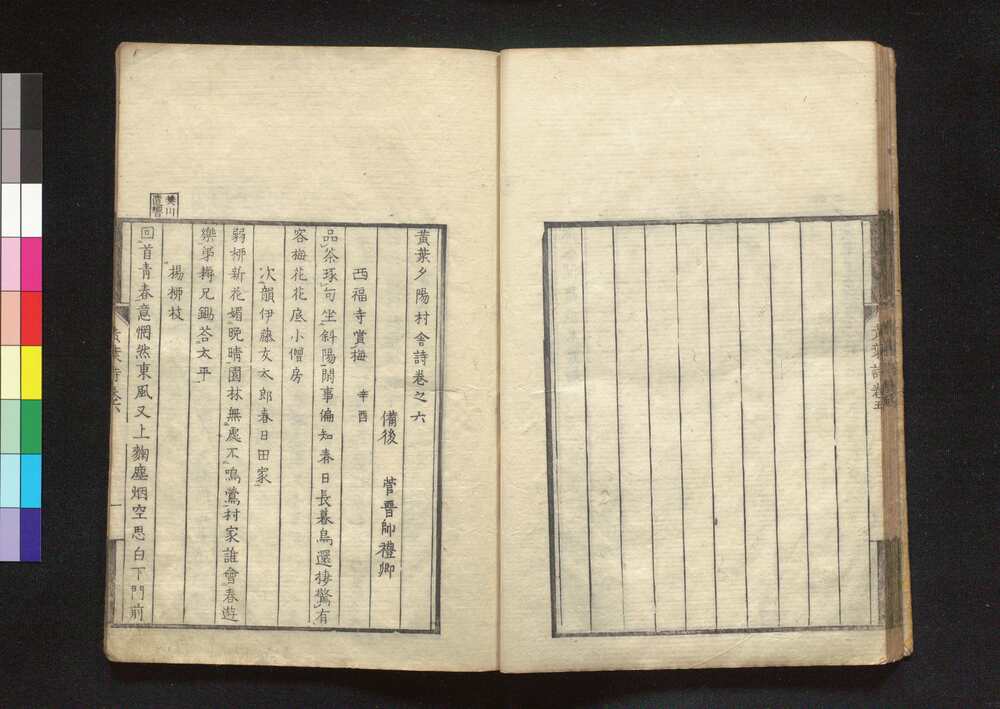 黃葉詩卷五
黃葉夕陽村舍詩卷之六
備後 菅晋帥禮卿
西福寺賞梅 辛酉
品茶琢句坐斜陽閑事偏知春日長暮鳥還棲驚有
客梅花花底小僧房
次韻伊藤文太郎春日田家
弱柳新花媚晩晴園林無處不鳴鶯村家誰會春遊
樂弟耨兄鋤荅太平
楊柳枝
回首青春意惘然東風又上麴塵烟空思白下門前
黃葉詩卷六
一